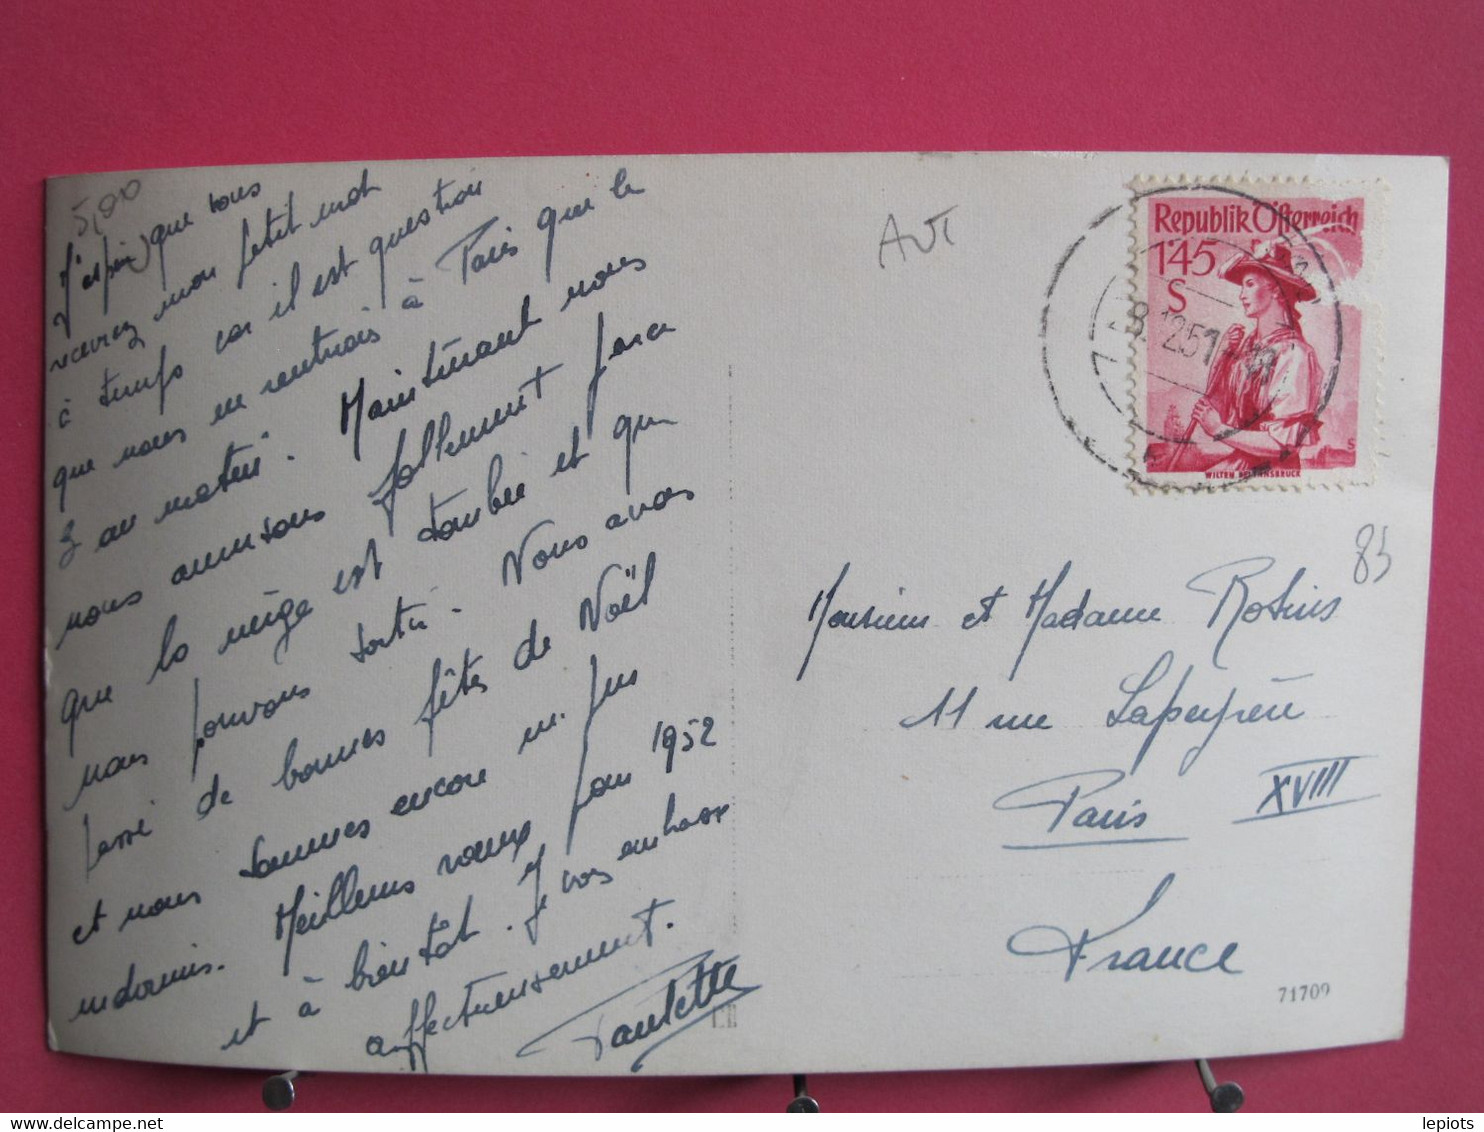 5,00
J'espère que vous
recevrez mon petit mot
à temps car il est question
que nous ne rentrions à Paris que le
3 au matin. Maintenant nous
nous amusons follement parce
que la neige est tombée et que
nous pouvons sortir. Nous avons
passé de bonnes fêtes de Noël
et nous sommes encore un peu
endormis. Meilleurs vœux pour 1952
et à bientôt. Je vous embrasse
affectueusement.
Paulette
AUT
Republik Österreich
1.45
S
8.12.51
WILTEN BEI INNSBRUCK
85
Monsieur et Madame
11 rue Lapeyrère
Paris XVIII
France
71709
lepiots